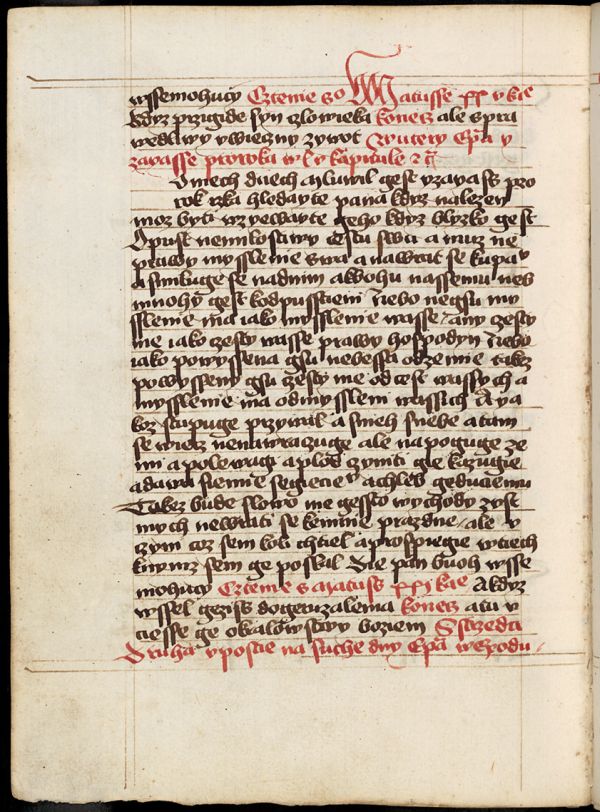 wssemohucy Cztenie so Matusse xx v kie
kdyz przigide syn czlowieka konecz ale spra
wedliwy v wieczny zywot V vtery Epła v
yzayasse proroka w l v kapitule 
V niech dnech mluwil gest yzayass pro
rok rzka hledayte pana kdyz nalezen
moz byti wzyewayte geho kdyz blyzko gest
Opust nemilostiwy cestu swu a muz ne
prawy myssleme swa a nawrat se ku panu
a smiluge se nad nim a k bohu nassemu neb
mnohy gest k odpusstieni Nebo negsu my
ssleme ma iako myssleme wasse any czesty
me iako czesty wasse prawy hospodyn Nebo
iako powyssena gsu nebessa od zeme takez
powysseny gsu czesty me od cest wassych a
myssleme ma od mysslem wassich A ya
koz stupuge przywal a snieh s nebe a tam
se wiecz nenawraczuge ale napoguge ze
mi a polewage a plod czyniti gie kazugie
a dawa siemie segiecie a chleb geduciemu
Takez bude slowo me gessto wychody z vst
mych newrati se ke mnie prazdne ale v
czym coz sem koli chtiel a prospiegie w tiech
k nymz sem ge poslal Die pan buoh wsse
mohucy Cztenie s Matuss xxj kie A kdyz
wssel gezis do geruzalema konecz a tu v
ciesse ge o kralowstwy boziem S strzedu
Druhu v postie na suche dny Epła w Exodu